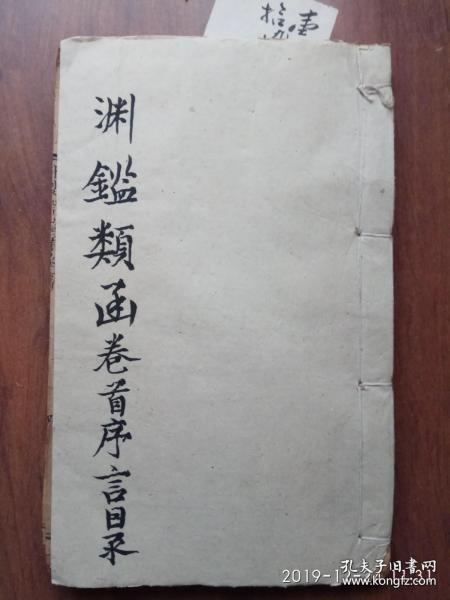 渊鑑類函卷首序言目录
孔夫子旧书网
www.kongfz.com